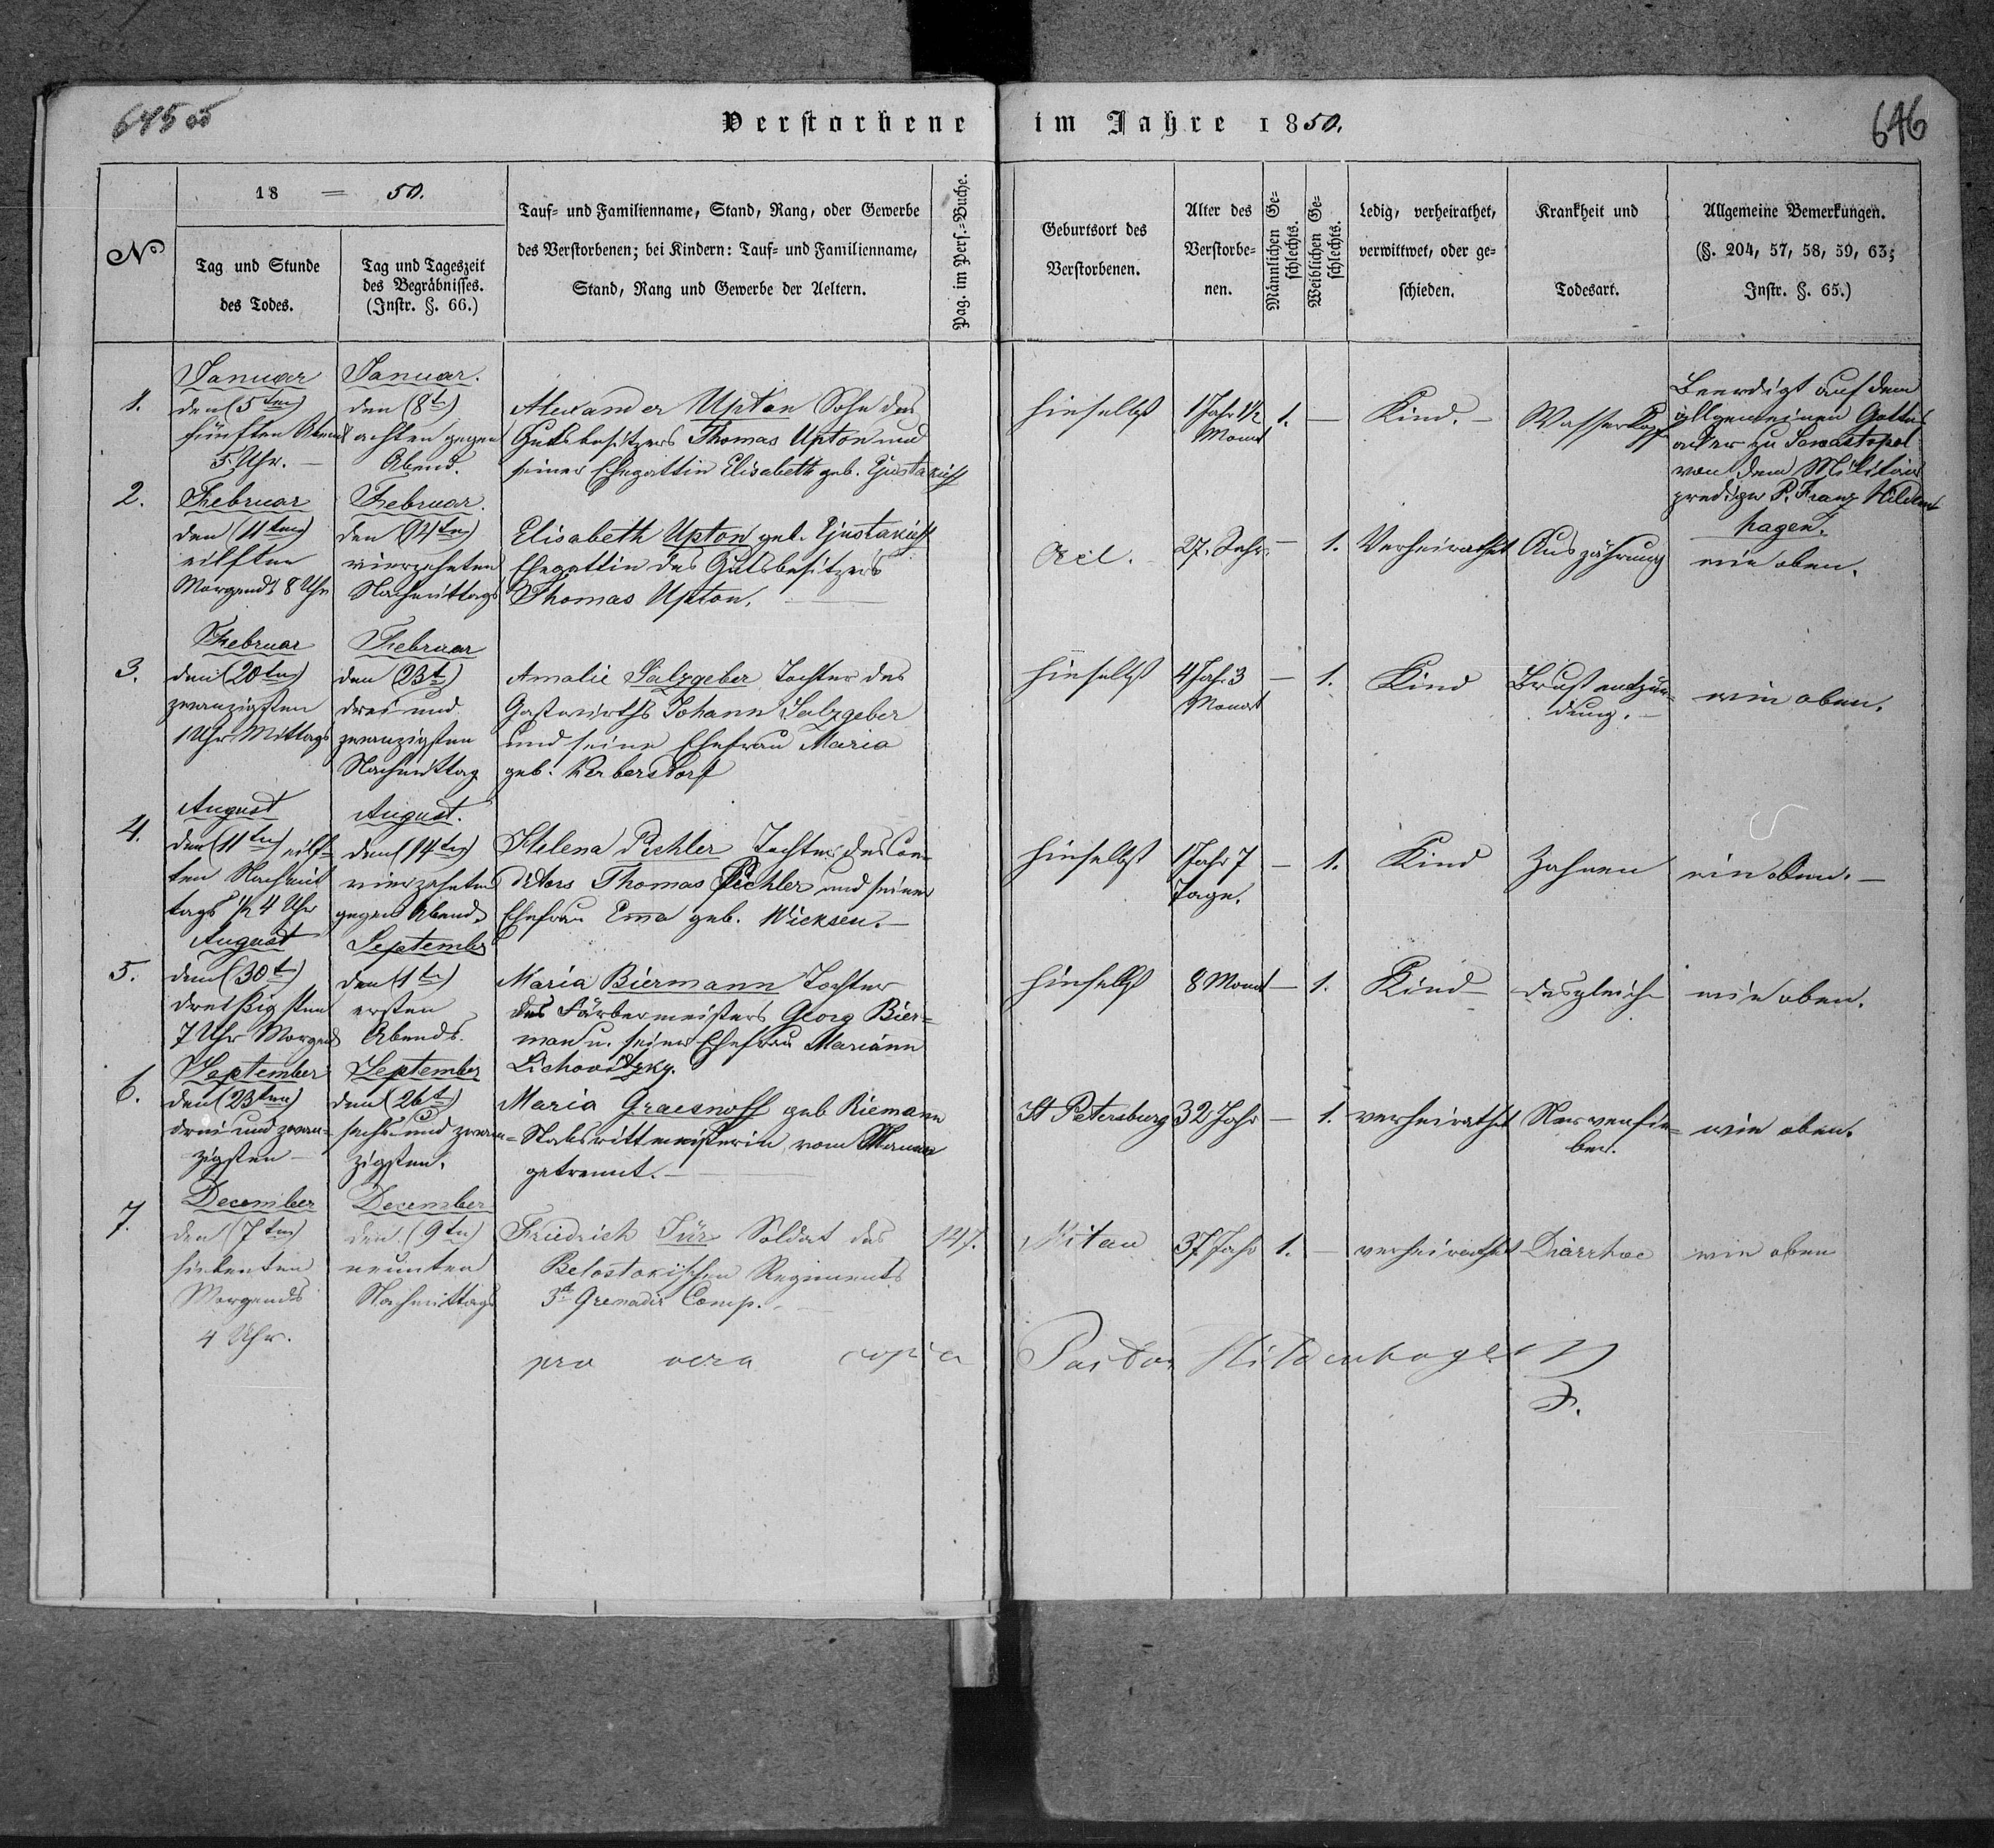 645
646
Verstorbene im Jahre 1850.
No
18 = 50.
Tag und Stunde
des Todes.
Tag und Tageszeit
des Begräbnisses.
(Instr. §. 66.)
Tauf- und Familienname, Stand, Rang, oder Gewerbe
des Verstorbenen; bei Kindern: Tauf- und Familienname,
Stand, Rang und Gewerbe der Aeltern.
Pag. im Pers.-Buche.
Geburtsort des
Verstorbenen.
Alter des
Verstorbe-
nen.
Männlichen Ge-
schlechts.
Weiblichen Ge-
schlechts.
Ledig, verheirathet,
verwittwet, oder ge-
schieden.
Krankheit und
Todesart.
Allgemeine Bemerkungen.
(§. 204, 57, 58, 59, 63;
Instr. §. 65.)
1.
Januar
den (5ten)
fünften Abend
5 Uhr. —
Januar.
den (8t)
achten gegen
Abend.
Alexander Upton Sohn des
Gutsbesitzers Thomas Upton und
seiner Ehegattin Elisabeth geb.
hieselbst
1 Jahr 1½
Monat
1.
—
Kind. —
Wasserkopf
Beerdigt auf dem
allgemeinen Gottes
acker zu Sewastopol
von dem Militair
prediger P. Franz Hilden
hagen.
2.
Februar
den (11ten)
eilften
Morgends 8 Uhr
Februar.
den (14ten)
vierzehnten
Nachmittags
Elisabeth Upton geb.
Ehegattin des Gutsbesitzers
Thomas Upton.
27. Jahr.
—
1.
Verheirathet
Auszährung
wie oben.
3.
Februar
den (20ten)
zwanzigsten
1 Uhr Mittags
Februar
den (23t)
drei und
zwanzigsten
Nachmittag
Amalie Salzgeber Tochter des
Gastwirths Johann Salzgeber
und seine Ehefrau Maria
geb.
hieselbst
4 Jah. 3
Monat
—
1.
Kind
Brustentzün-
dung. —
wie oben.
4.
August
den (11ten) eilf-
ten Nachmit
tags ½ 4 Uhr
August.
den (14ten)
vierzehnten
gegen Abend.
Helena Pichler Tochter des Con-
ditors Thomas Pichler und seiner
Ehefrau Ema geb. Wicksen. —
hieselbst
1 Jahr 7
Tage.
—
1.
Kind
Zahnen
wie oben. —
5.
August
den (30t)
dreißigsten
7 Uhr Morgends
September
den (1t)
ersten
Abends.
Maria Biermann Tochter
des Färbermeisters Georg Bier-
man u. seiner Ehefrau Mariann
Lichovitzky.
hieselbst
8 Monat
—
1.
Kind
desgleichen
wie oben.
6.
September
den (23ten)
drei und zwan-
zigsten —
September
den (26t)
sechs und zwan-
zigsten.
Maria Graesnoff geb Riemann
Stabsrittmeisterin vom Manne
getrennt. —
St Petersburg
32 Jahr
—
1.
verheirathet
Nervenfie-
ber.
wie oben.
7.
December
den (7ten)
siebenten
Morgends
4 Uhr.
December
den (9ten)
neunten
Nachmittags
Friedrich Sür Soldat des
Belostokischen Regiments
3t Grenadir Comp. —
147.
Mitau
37 Jahr
1.
—
verheirathet
Diarrhoe
wie oben
pro vera copia Pastor Hildenhagen